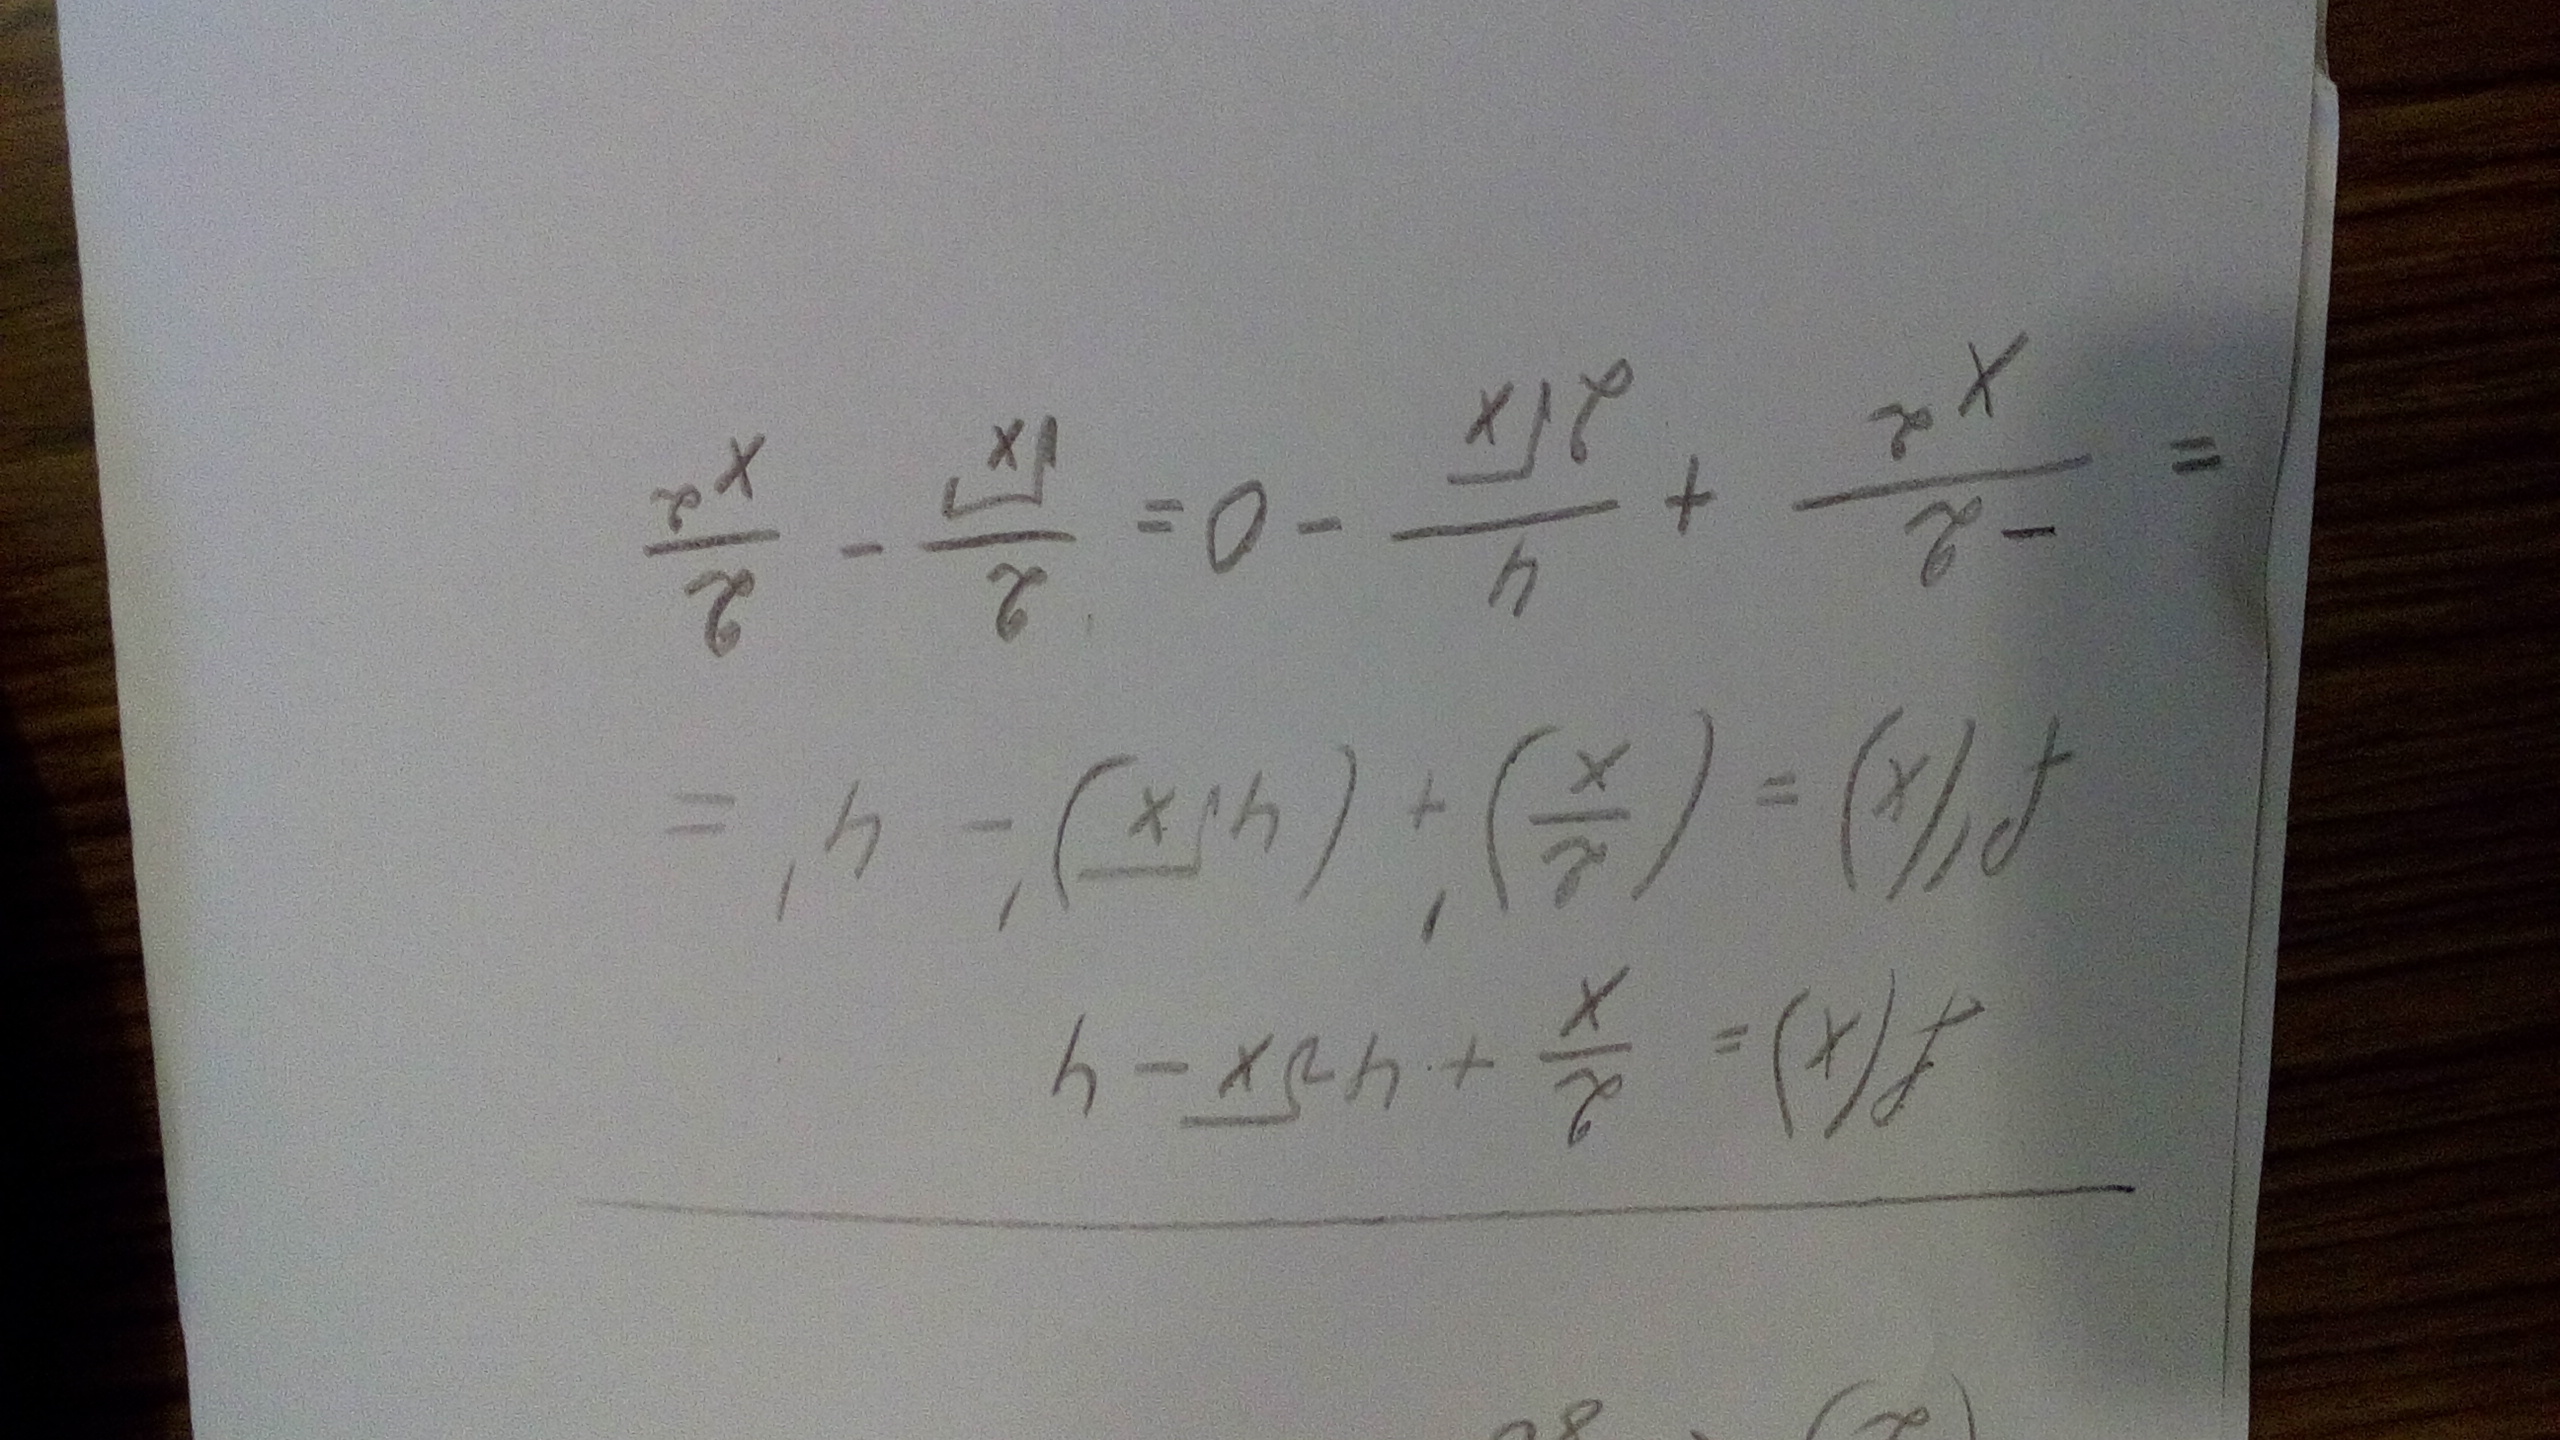 f(x) = 2/x + 4√x - 4
f'(x) = (2/x)' + (4√x)' - 4' =
= -2/x² + 4/2√x - 0 = 2/√x - 2/x²